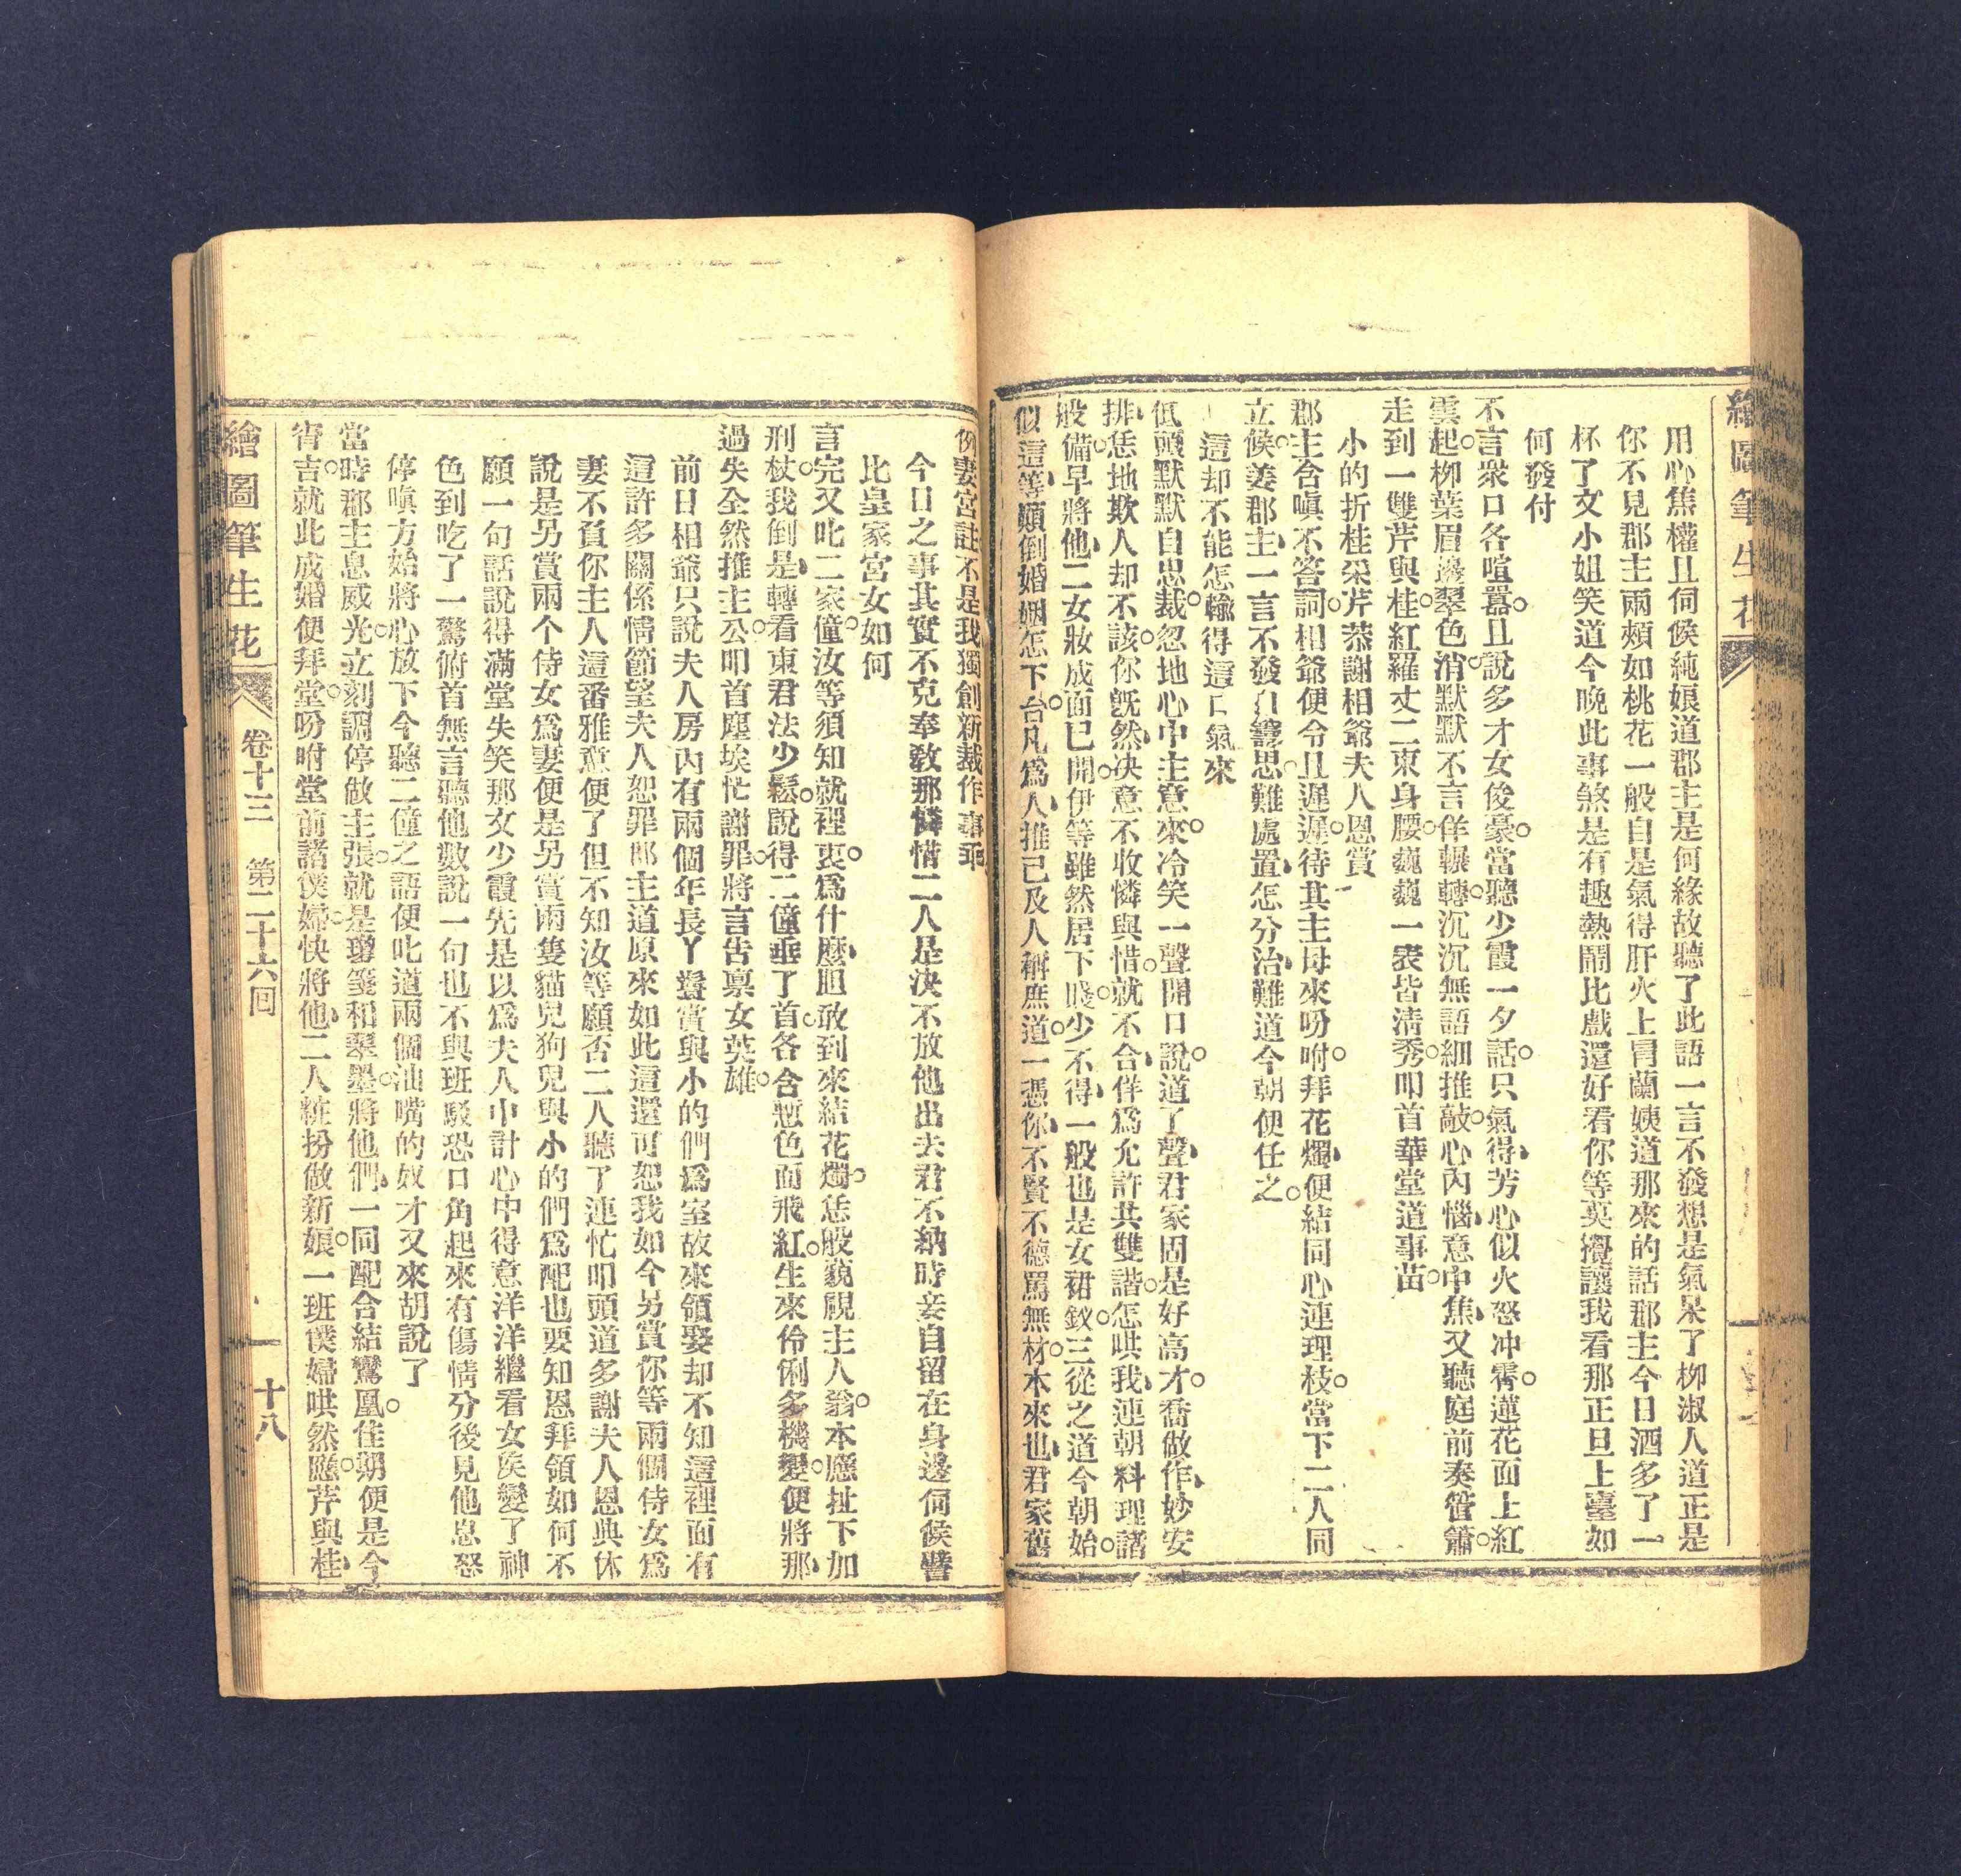 繪圖筆生花
用心焦權且伺候純娘道郡主是何緣故聽了此語一言不發想是氣呆了柳淑人道正是
你不見郡主兩頰如桃花一般自是氣得肝火上冒蘭姨道那來的話郡主今日酒多了一
杯了文小姐笑道今晚此事煞是有趣熱鬧比戲還好看你等莫攪讓我看那正旦上臺如
何發付
不言衆口各喧囂且說多才女俊豪當聽少霞一夕話只氣得芳心似火怒冲霄蓮花面上紅
雲起柳葉眉邊翠色消默默不言佯輾轉沉沉無語細推敲心內惱意中焦又聽庭前奏管簫
走到一雙芹與桂紅羅丈二束身腰巍巍一表皆清秀叩首華堂道事苗
小的折桂采芹恭謝相爺夫人恩賞
郡主含嗔不答詞相爺便令且遲遲待其主母來吩咐拜花燭便結同心連理枝當下二人同
立候姜郡主一言不發自籌思難處置怎分治難道今朝便任之
這却不能怎輸得這口氣來
低頭默默自思裁忽地心中主意來冷笑一聲開口說道了聲君家固是好高才喬做作妙安
排恁地欺人却不該你旣然决意不收憐與惜就不合佯爲允許共雙諧怎哄我連朝料理諸
般備早將他二女妝成面已開伊等雖然居下賤少不得一般也是女裙釵三從之道今朝始
似這等顚倒婚姻怎下台凡爲人推己及人稱庶道一憑你不賢不德罵無材本來也君家舊
例妻宮註不是我獨創新裁作事乖
今日之事其實不克奉敎那憐惜二人是决不放他出去君不納時妾自留在身邊伺候譬
比皇家宮女如何
言完又叱二家僮汝等須知就裡衷爲什麼胆敢到來結花燭恁般藐視主人翁本應扯下加
刑杖我倒是轉看東君法少鬆說得二僮垂了首各含慙色面飛紅生來伶俐多機變便將那
過失全然推主公叩首塵埃忙謝罪將言告禀女英雄
前日相爺只說夫人房內有兩個年長丫鬟賞與小的們爲室故來領娶却不知這裡面有
這許多關係情節望夫人恕罪郡主道原來如此這還可恕我如今另賞你等兩個侍女爲
妻不負你主人這番雅意便了但不知汝等願否二人聽了連忙叩頭道多謝夫人恩典休
說是另賞兩个侍女爲妻便是另賞兩隻貓兒狗兒與小的們爲配也要知恩拜領如何不
願一句話說得滿堂失笑那文少霞先是以爲夫人中計心中得意洋洋繼看女矦變了神
色到吃了一驚俯首無言聽他數說一句也不與班駁恐口角起來有傷情分後見他息怒
停嗔方始將心放下今聽二僮之語便叱道兩個油嘴的奴才又來胡說了
當時郡主息威光立刻調停做主張就是瑤箋和翠墨將他們一同配合結鸞凰佳期便是今
宵吉就此成婚便拜堂吩咐堂前諸僕婦快將他二人粧扮做新娘一班僕婦哄然應芹與桂
繪圖筆生花 卷十三 第二十六回 十八